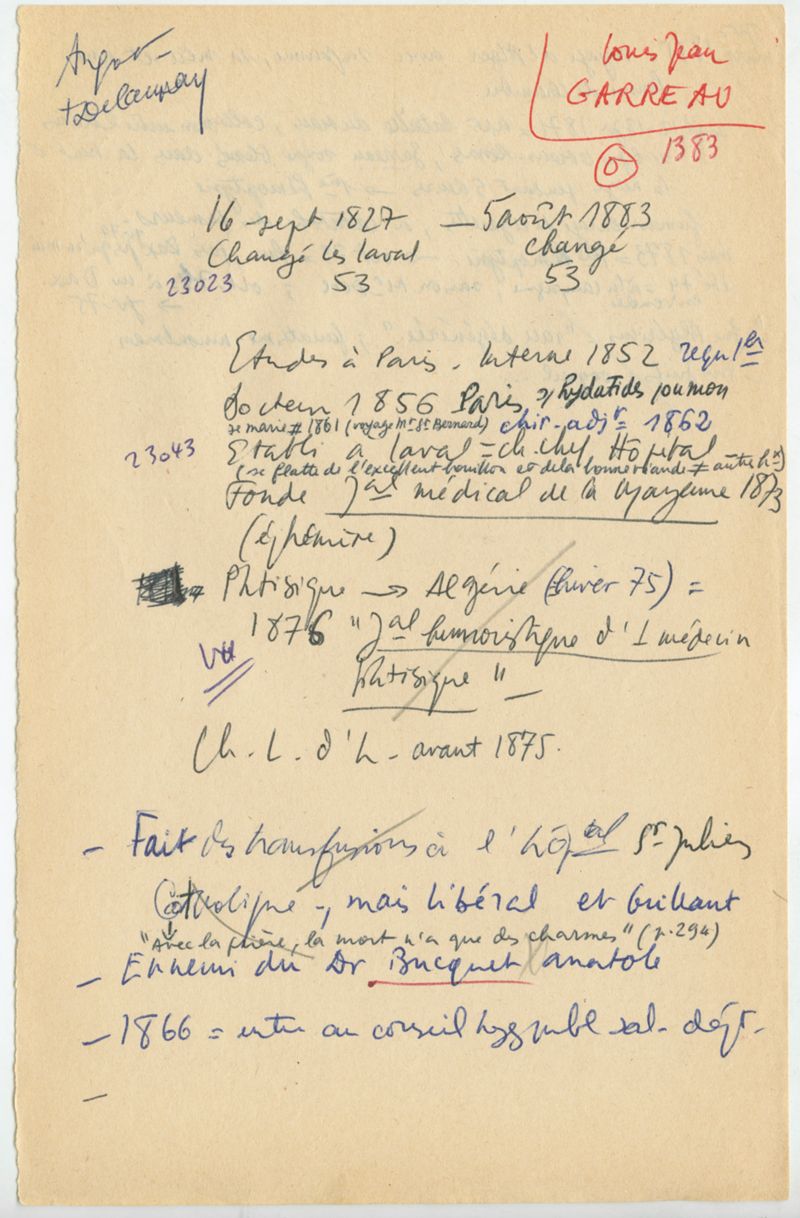 Angot
+ Delaunay
Louis Jean
GARREAU
1383
16 sept 1827 — 5 août 1883
Changé lès Laval changé
23023 53 53
Etudes à Paris. Interne 1852 regul ier
Docteur 1856 Paris = hydatides poumon
se marie # 1861 (voyage Mt St Bernard) chir. adjt = 1862
23043 Etabli à Laval = ch. chef, Hôpital
(se flatte de l'excellent bouillon et de la bonne viande ≠ autre hx)
Fonde Jal médical de la Mayenne 1873
(éphémère)
Phtisique → Algérie (hiver 75) =
1876 " Jal humoristique d'1 médecin
phtisique " —
Ch. L. d'h. avant 1875.
— Fait des transfusions à l'hôpital St Julien
Catholique -, mais libéral et brillant
"Avec la prière, la mort n'a que des charmes" (p. 294)
— Ennemi du Dr Bucquet anatole
— 1866 = entre au conseil hyg publ sal. dépt.
—